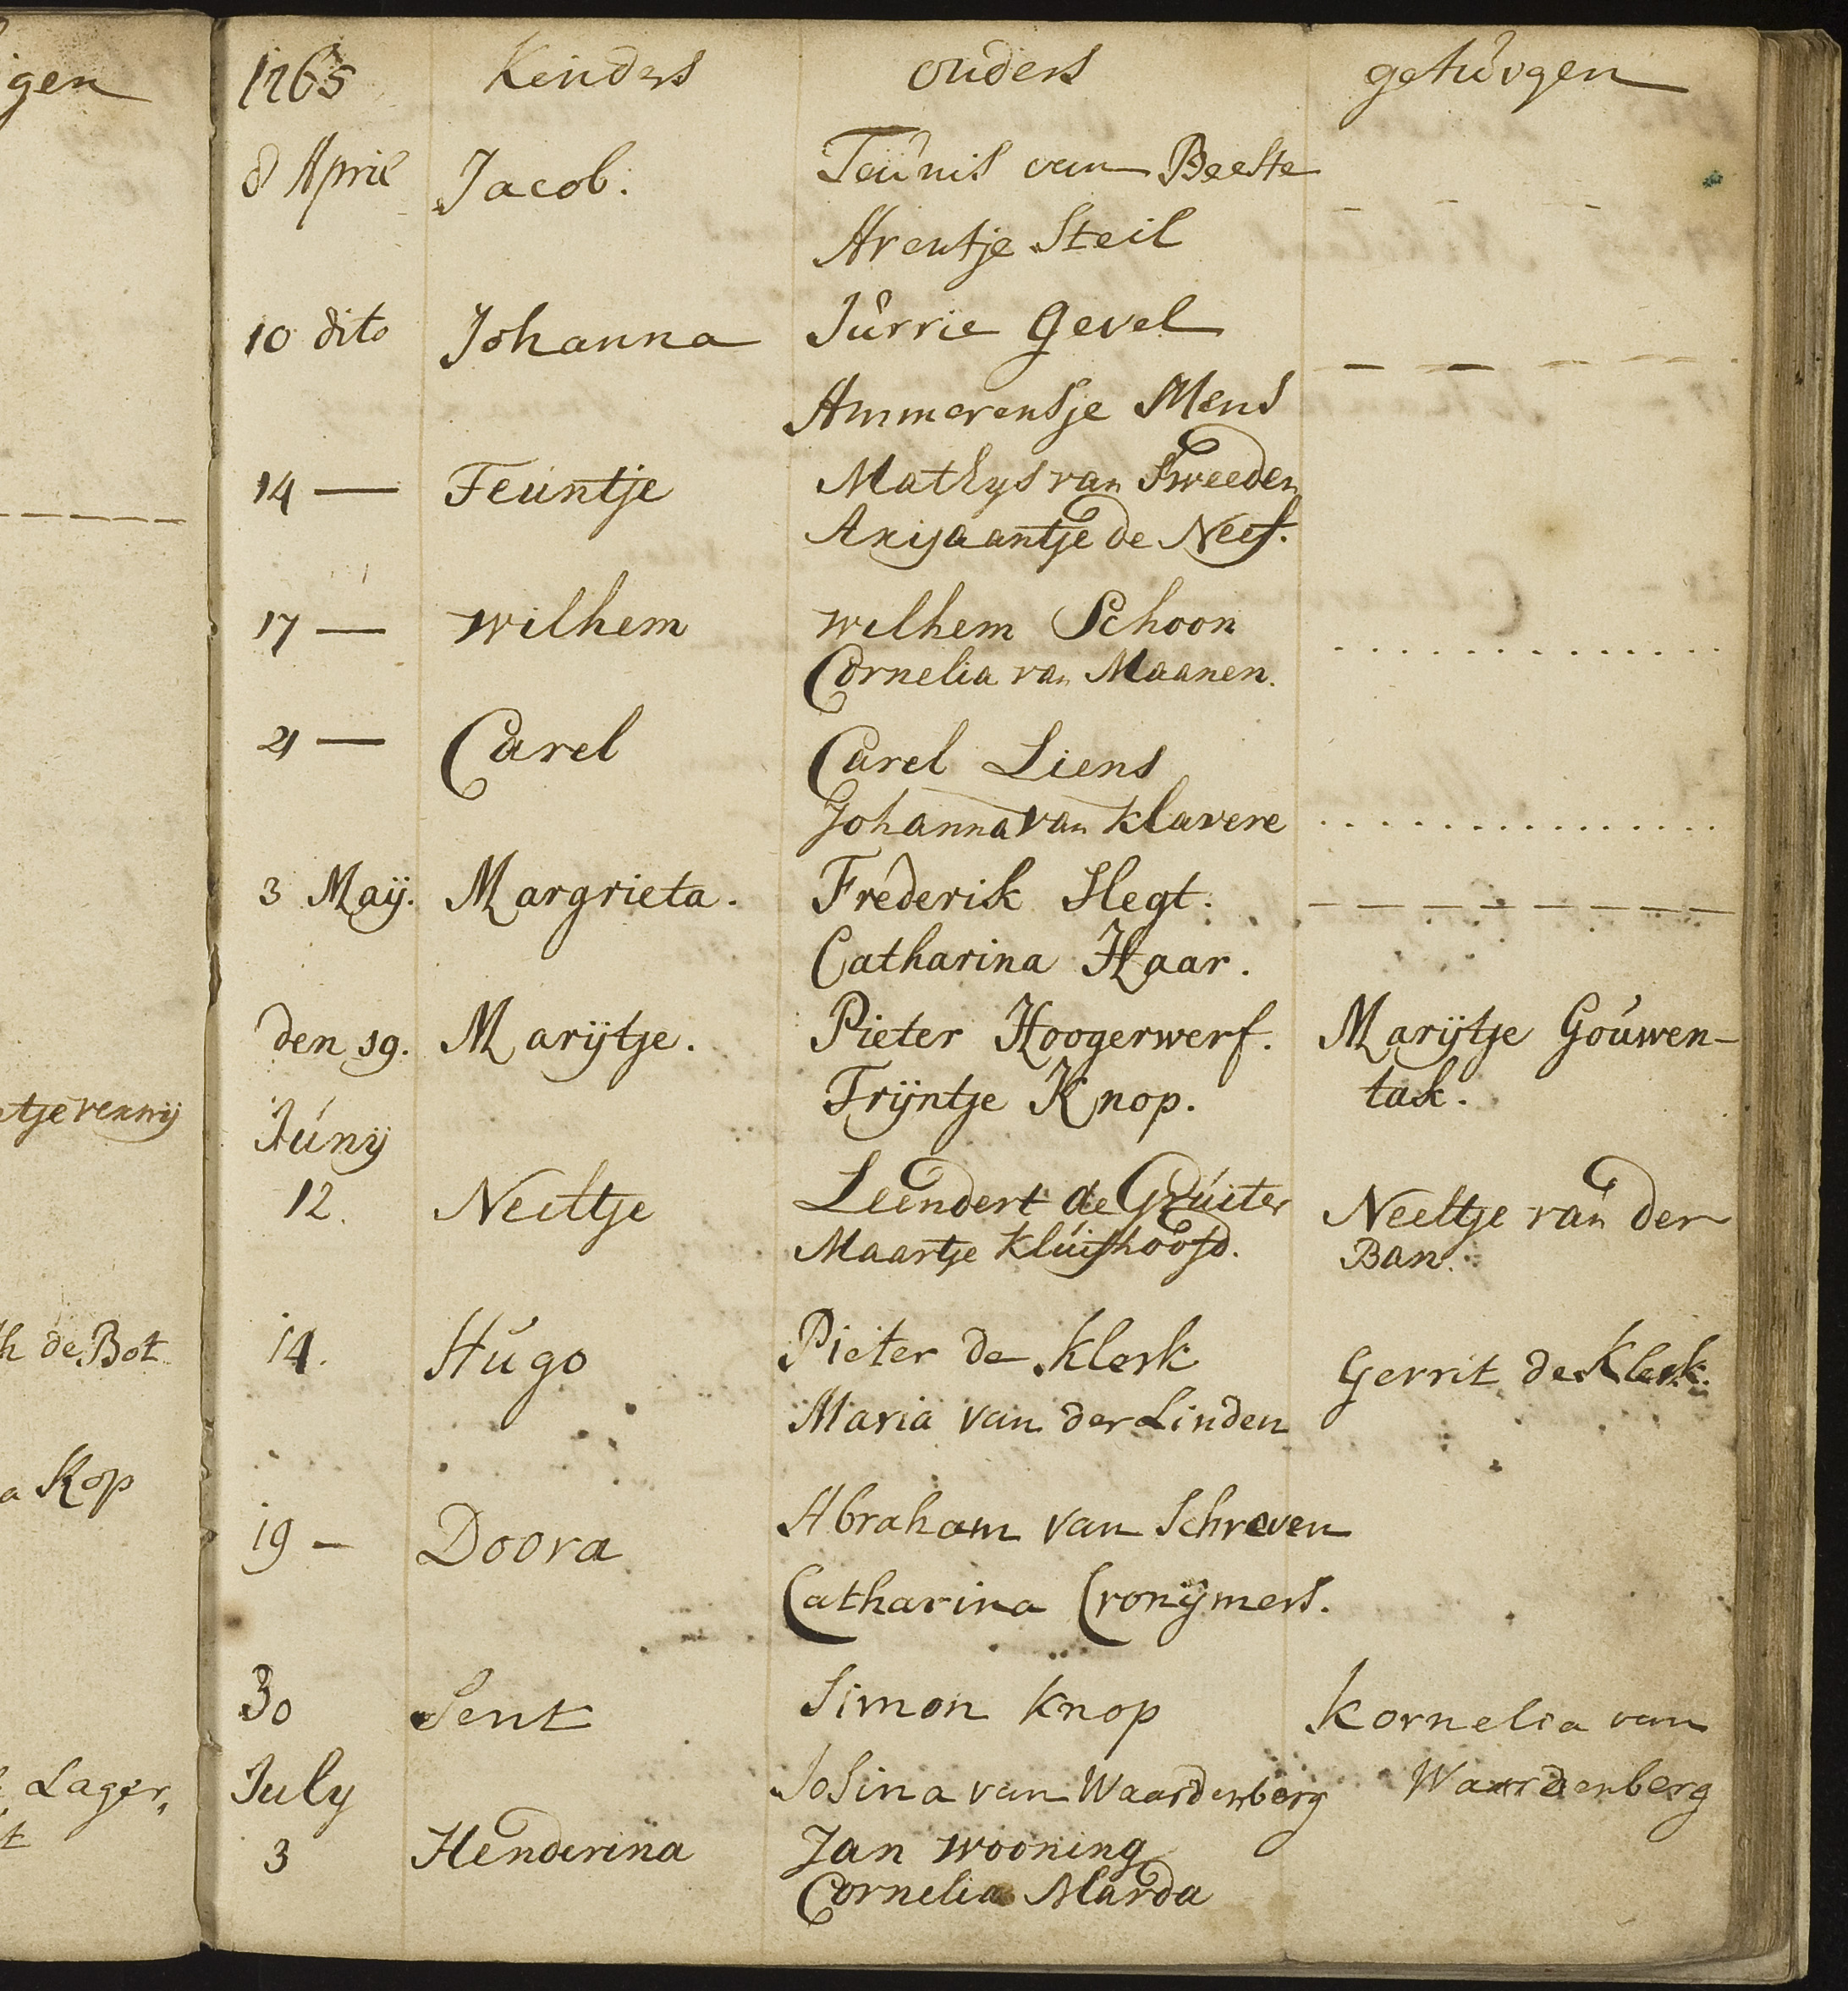 igen
tje vennij
h de Bot
a Kop
Lager,
t
1765 Kinders ouders getuÿgen
8 April Jacob. Teunis van Beeste
Arentje Steil
10 dito Johanna Jurrie Gevel
Ammerensje Mens
14 — Teuntje Mathys van Tweeden
Arijaantje de Neef.
17 — Wilhem Wilhem Schoon
Cornelia van Maanen.
21 — Carel Carel Liens
Johanna van Klavere
3 Maÿ. Margrieta. Frederik Slegt.
Catharina Haar.
den 19. Marÿtje. Pieter Hoogerwerf. Marÿtje Gouwen-
Trÿntje Knop. tak.
Junÿ
12. Neeltje Leendert de Gruiter Neeltje van der
Maartje Kluifhoofd. Ban.
14. Hugo Pieter de Klerk Gerrit de Klerk.
Maria van der Linden
19 — Doora Abraham van Schreven
Catharina Cronÿmers.
30 Sent Simon Knop Kornelia van
July Josina van Waardenberg Waardenberg
3 Henderina Jan Wooning
Cornelia Marda